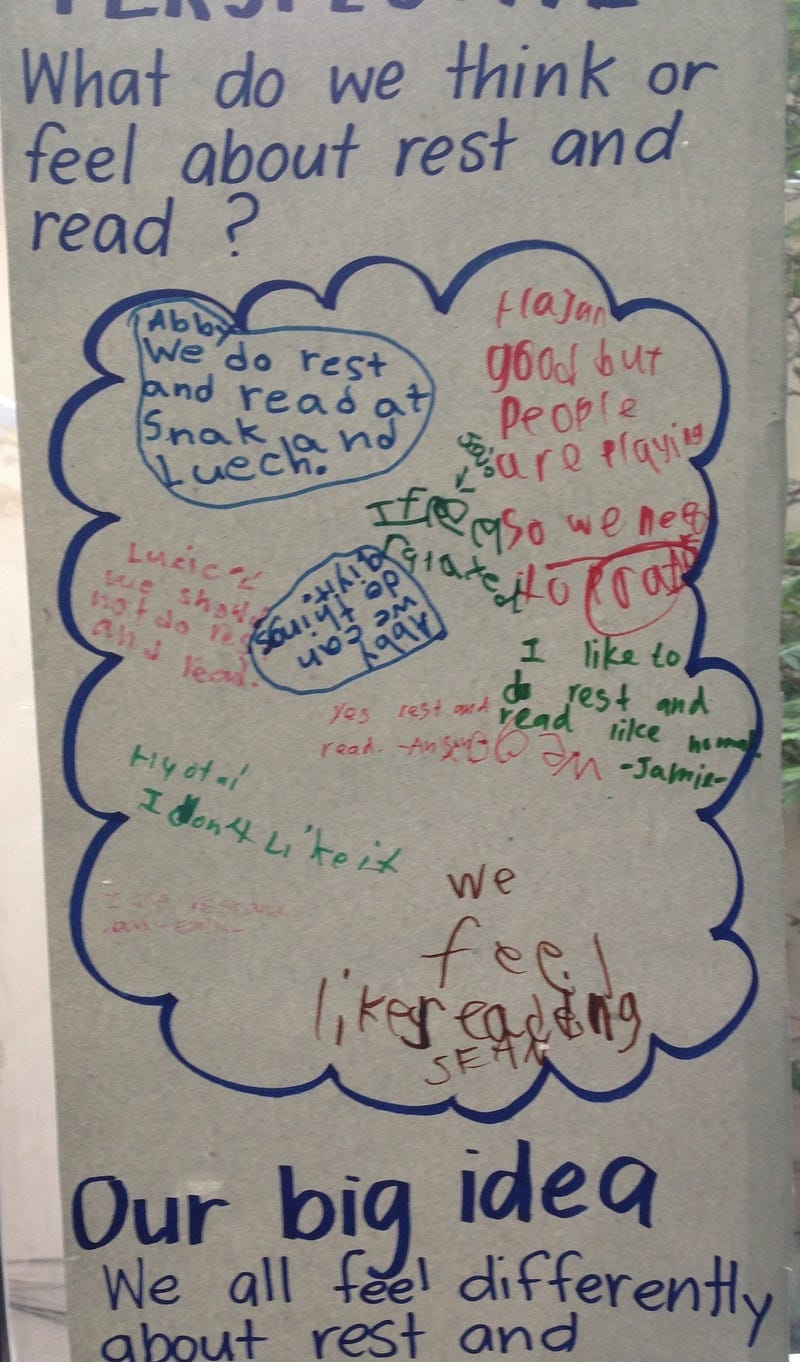 PERSPECTIVE
What do we think or
feel about rest and
read ?
Abby
We do rest
and read at
Snak and
Luech.
Hajun
good but
People
are playing
so we need
to
I feel
Abby
we can
do things
Lucie
we should
not do res
and read.
I like to
do rest and
read like
-Jamie-
Yes rest and
read.
I dont Like it
we
feel
like reading
SEAN
Our big idea
We all feel differently
about rest and